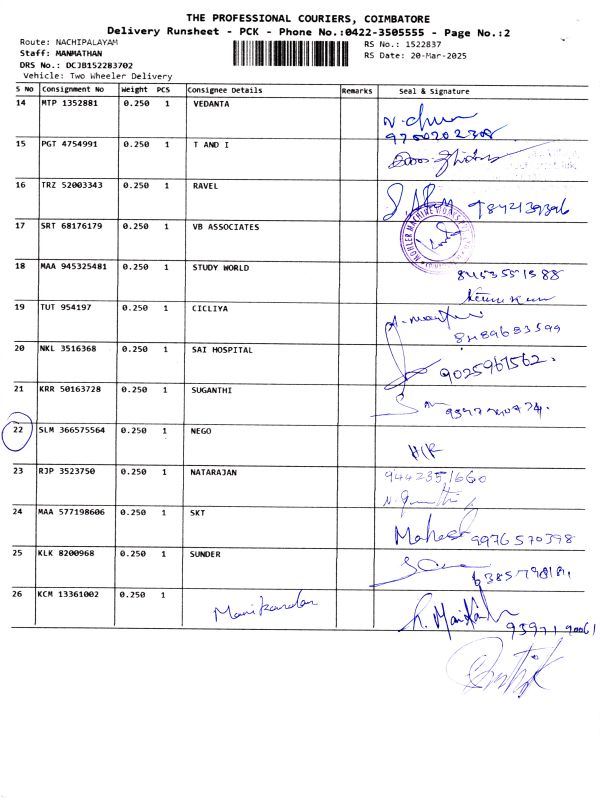 THE PROFESSIONAL COURIERS, COIMBATORE
Delivery Runsheet - PCK - Phone No.:0422-3505555 - Page No.:2
Route: NACHIPALAYAM RS No.: 1522837
Staff: MANMATHAN RS Date: 20-Mar-2025
DRS No.: DCJB152283702
Vehicle: Two Wheeler Delivery
S NO Consignment No Weight PCS Consignee Details Remarks Seal & Signature
14 MTP 1352881 0.250 1 VEDANTA
15 PGT 4754991 0.250 1 T AND I
16 TRZ 52003343 0.250 1 RAVEL
17 SRT 68176179 0.250 1 VB ASSOCIATES
18 MAA 945325481 0.250 1 STUDY WORLD
19 TUT 954197 0.250 1 CICLIYA
8489683599
20 NKL 3516368 0.250 1 SAI HOSPITAL
9025961562.
21 KRR 50163728 0.250 1 SUGANTHI
22 SLM 366575564 0.250 1 NEGO
23 RJP 3523750 0.250 1 NATARAJAN 9442351660
24 MAA 577198606 0.250 1 SKT
Mahesh 9976570398
25 KLK 8200968 0.250 1 SUNDER
26 KCM 13361002 0.250 1 Manikandan